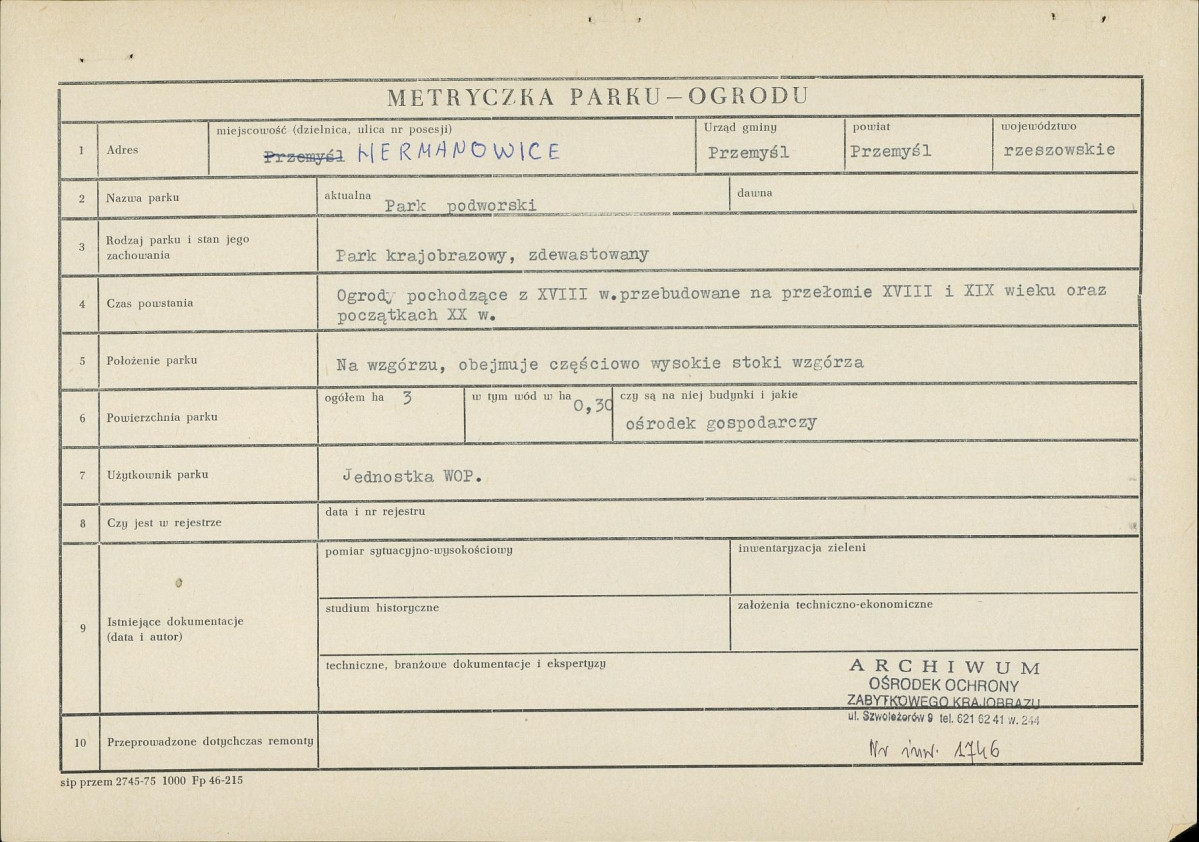 METRYCZKA PARKU—OGRODU
1
Adres
miejscowość (dzielnica, ulica nr posesji)
Przemyśl HERMANOWICE
Urząd gminy
Przemyśl
powiat
Przemyśl
województwo
rzeszowskie
2
Nazwa parku
aktualna
Park podworski
dawna
3
Rodzaj parku i stan jego
zachowania
Park krajobrazowy, zdewastowany
4
Czas powstania
Ogrody pochodzące z XVIII w.przebudowane na przełomie XVIII i XIX wieku oraz
początkach XX w.
5
Położenie parku
Na wzgórzu, obejmuje częściowo wysokie stoki wzgórza
6
Powierzchnia parku
ogółem ha 3
w tym wód w ha 0,30
czy są na niej budynki i jakie
ośrodek gospodarczy
7
Użytkownik parku
Jednostka WOP.
8
Czy jest w rejestrze
data i nr rejestru
9
Istniejące dokumentacje
(data i autor)
pomiar sytuacyjno-wysokościowy
inwentaryzacja zieleni
studium historyczne
założenia techniczno-ekonomiczne
techniczne, branżowe dokumentacje i ekspertyzy
ARCHIWUM
OŚRODEK OCHRONY
ZABYTKOWEGO KRAJOBRAZU
ul. Szwoleżerów 9 tel. 621 62 41 w. 244
10
Przeprowadzone dotychczas remonty
Nr inw. 1746
sip przem 2745-75 1000 Fp 46-215